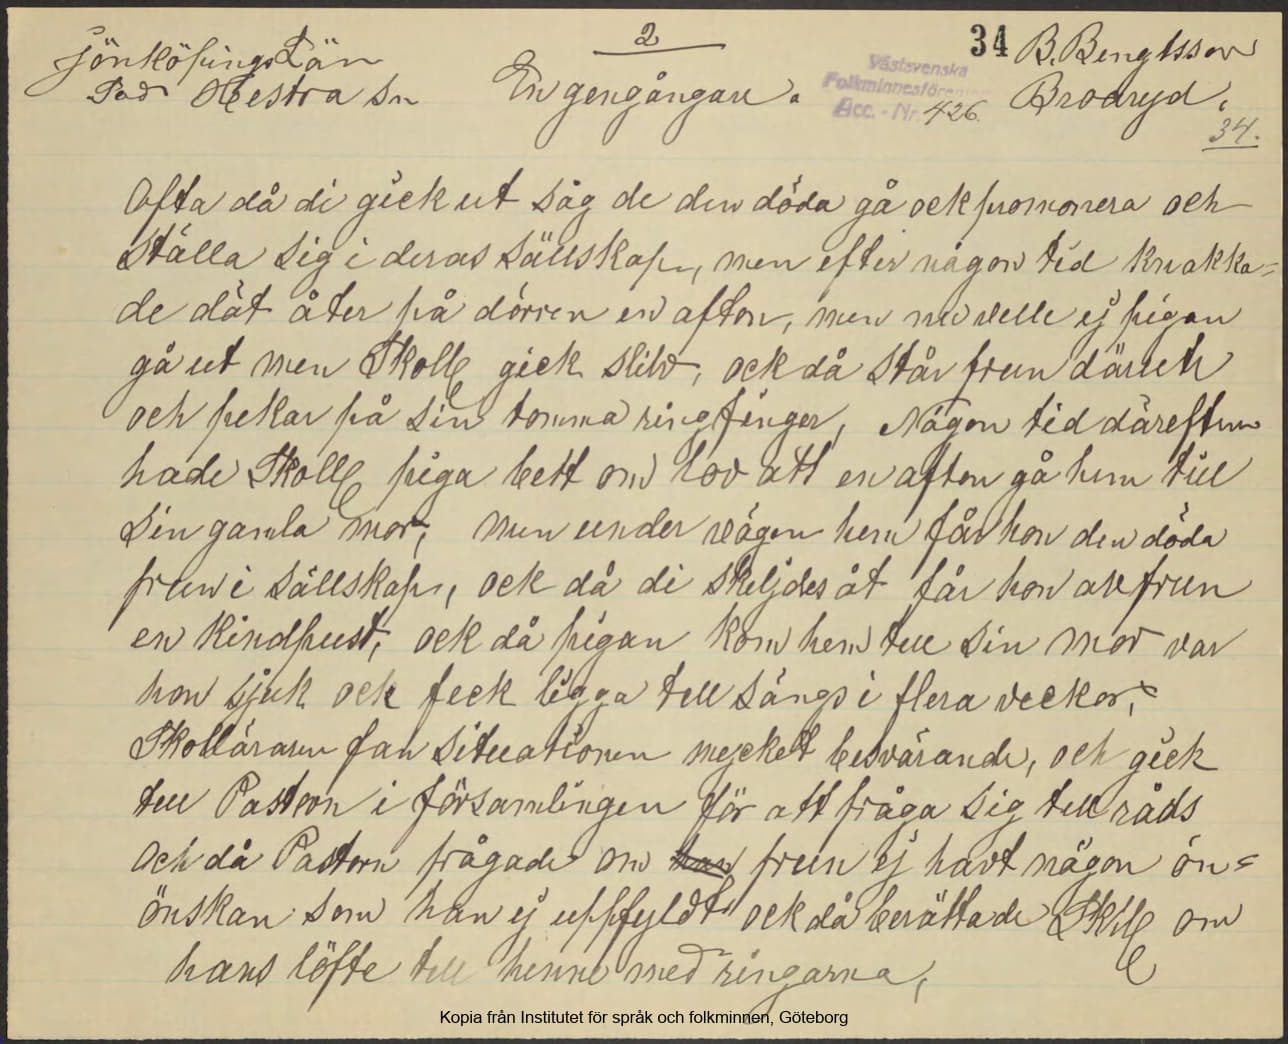 2
34
B. Bengtsson
Jönköpings Län
Västsvenska
Hestra Sn
En gengångare.
Folkminnesföreni
Acc. - Nr. 426.
Brodryd.
34.
Ofta då di gick ut såg de den döda gå ock promonera och
ställa sig i deras sällskap, men efter någon tid knakka=
de dät åter på dörren en afton, men nu velle ej pigan
gå ut men Skoll gick slilv, ock då står frun däruth
och pekar på sin tomma ringfinger, Någon tid däreftur
hade Skoll piga bett om lov att en afton gå hem till
sin gamla mor, men under vägen hem får hon den döda
frun i sällskap, ock då di skeljdes åt får hon av frun
en kindpust, ock då pigan kom hem till sin mor var
hon sjuk ock feck ligga tell sängs i flera veckor,
Skolläraren fan situationen mycket besvärande, och gick
tell Pastorn i församlingen för att fråga sig tell råds
och då Pastorn frågade om han frun ej havt någon ön=
önskan som han ej uppfyldt ock då berättade Skll om
hans löfte tell henne med ringarna,
Kopia från Institutet för språk och folkminnen, Göteborg